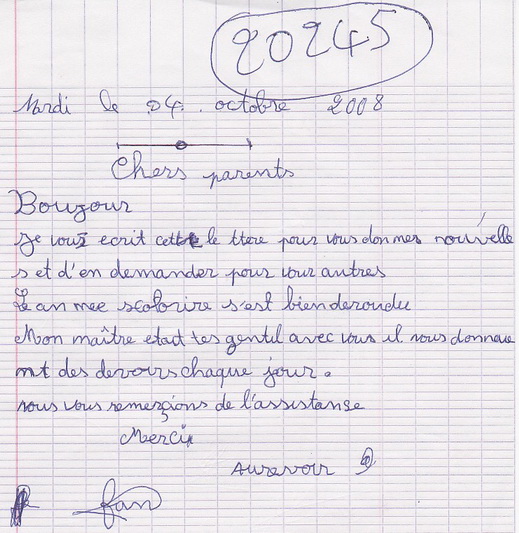 20245
Mardi le 04. octobre 2008
Chers parents
Boujour
Je vous ecrit cette le ttere pour vous don mes nouvelle
s et d'en demander pour vour autres
L'an mee scolorire s'est bien deroudu
Mon maître etait tes gentil avec vous il nous donneue
nt des devoirs chaque jour.
nous vous remerçions de l'assistanse
Merci
Aurevoir
fan